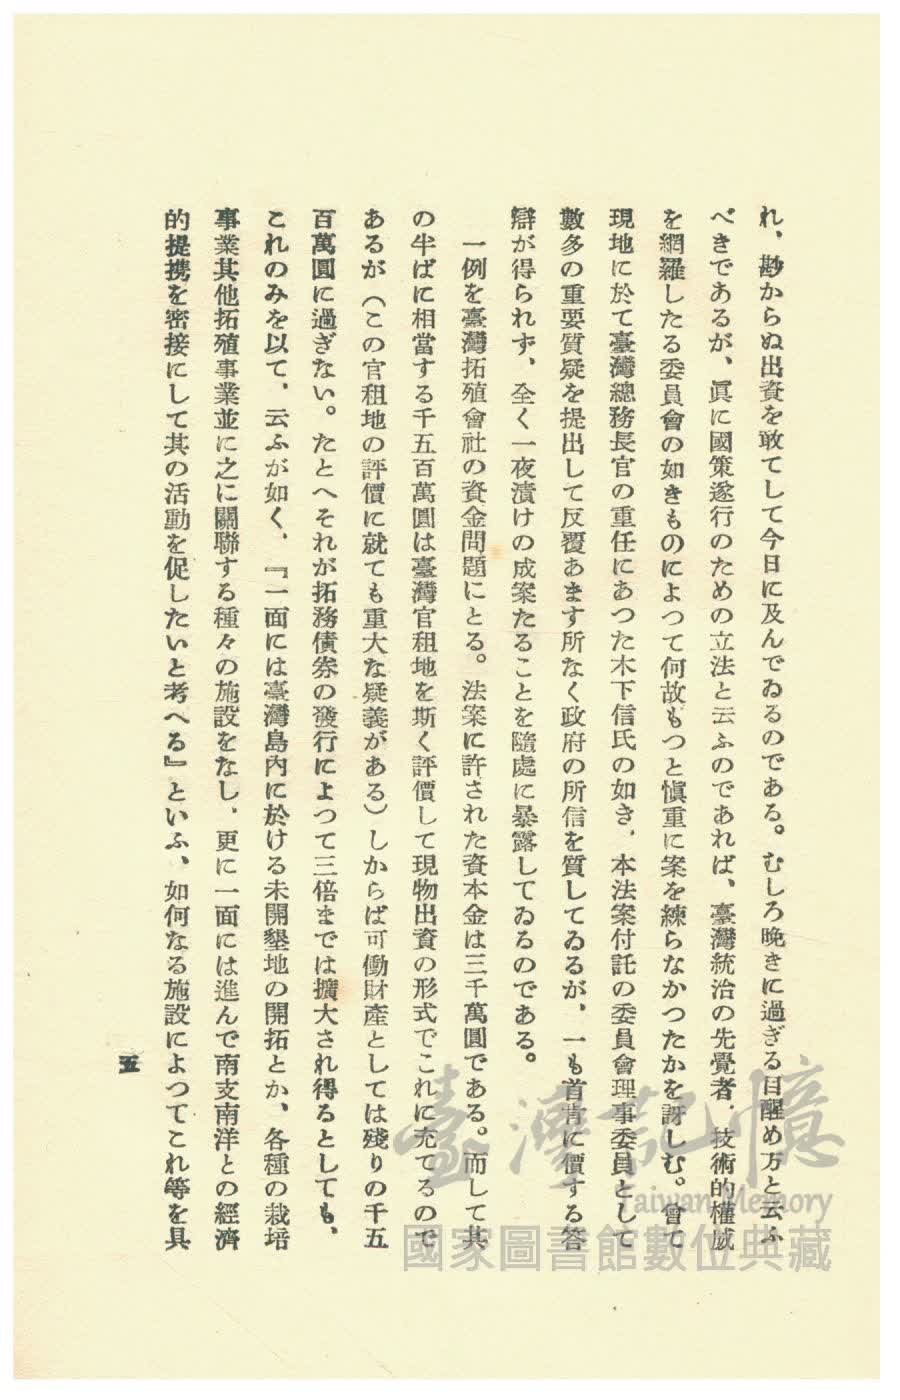 れ、尠からぬ出資を敢てして今日に及んでゐるのである。むしろ晩きに過ぎる目醒め方と云ふ
べきであるが、眞に國策遂行のための立法と云ふのであれば、臺灣統治の先覺者、技術的權威
を網羅したる委員會の如きものによつて何故もつと愼重に案を練らなかつたかを訝しむ。曾て
現地に於て臺灣總務長官の重任にあつた木下信氏の如き、本法案付託の委員會理事委員として
數多の重要質疑を提出して反覆あます所なく政府の所信を質してゐるが、一も首肯に價する答
辯が得られず、全く一夜漬けの成案たることを隨處に暴露してゐるのである。
一例を臺灣拓殖會社の資金問題にとる。法案に許された資本金は三千萬圓である。而して其
の半ばに相當する千五百萬圓は臺灣官租地を斯く評價して現物出資の形式でこれに充てるので
あるが（この官租地の評價に就ても重大な疑義がある）しからば可働財産としては殘りの千五
百萬圓に過ぎない。たとへそれが拓務債券の發行によつて三倍までは擴大され得るとしても、
これのみを以て、云ふが如く、『一面には臺灣島內に於ける未開墾地の開拓とか、各種の栽培
事業其他拓殖事業並に之に關聯する種々の施設をなし、更に一面には進んで南支南洋との經濟
的提携を密接にして其の活動を促したいと考へる』といふ、如何なる施設によつてこれ等を具
五
臺灣記憶
Taiwan Memory
國家圖書館數位典藏